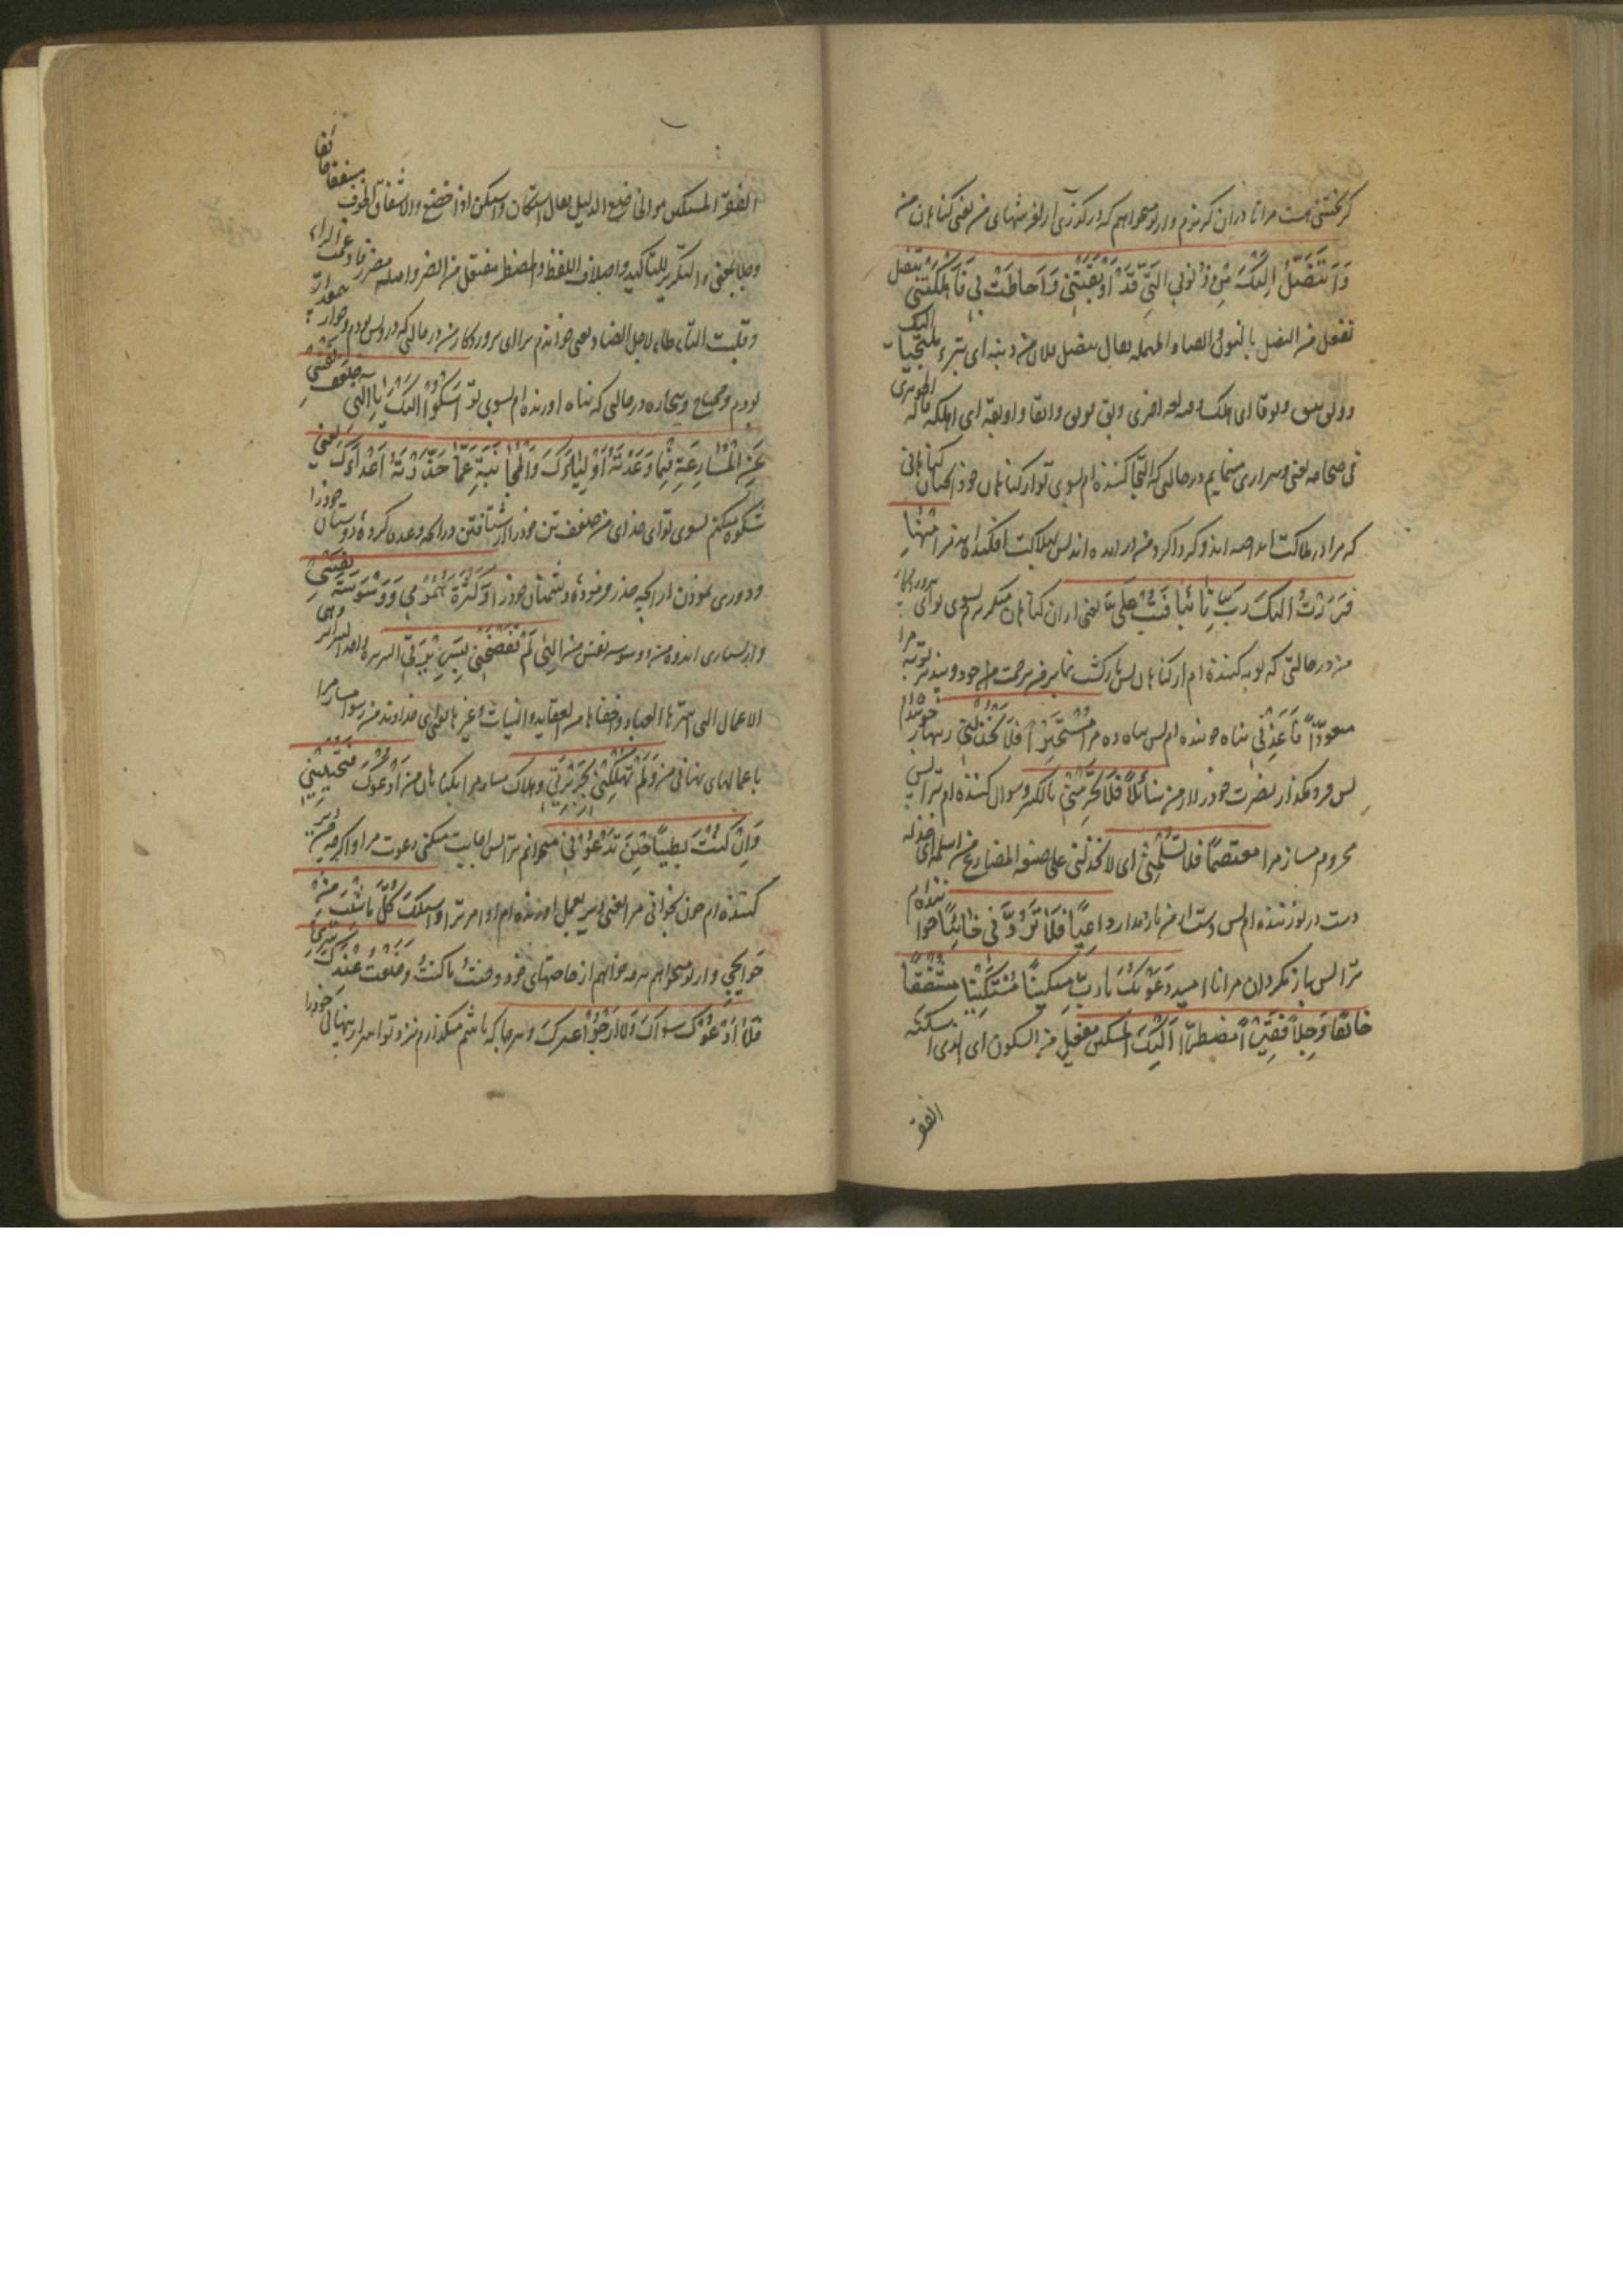 گریختنی هست مرا تا در آن گریزم و از تو میخواهم که درگذری از لغزشهای من یعنی گناهان من
وَاَتَنَصَّلُ اِلَیْکَ مِنْ ذُنُوبِی الَّتِی قَدْ اَوْبَقَتْنِی وَاَحَاطَتْ بِی فَاَهْلَکَتْنِی تنصل
تفعل من النصل بالنون والصاد المهمله یقال تنصل فلان من ذنبه ای تبرء ملتجیا الیک
ووبق یبق وبوقا ای هلک وفیه لغه اخری وبق یوبق وابقا واوبقه ای اهلکه قاله الجوهری
فی صحاحه یعنی و بیزاری مینمایم در حالتی که التجا کننده ام بسوی تو از گناهان خود انچنان گناهانی
که مرا در هلاکت انداخته اند و گرداگرد من درآمده اند پس بهلاکت افکنده اند مرا مِنْهَا
فَرَرْتُ اِلَیْکَ رَبِّ تَائِبًا فَتُبْ عَلَیَّ یعنی از آن گناهان میگریزم بسوی تو ای پروردگار
من در حالتی که توبه کننده ام از گناهان پس بازگشت نما بر من برحمت خود و بپذیر توبه مرا
مُتَعَوِّذًا فَاَعِذْنِی پناه جوینده ام پس پناه ده مرا مُسْتَجِیْرًا فَلَا تَخْذُلْنِی زینهار جوینده ام
پس فرو مگذار نصرت خود را از من سَائِلًا فَلَا تَحْرِمْنِی بالکسر و سوال کننده ام ترا پس
محروم مساز مرا مُعْتَصِمًا فَلَا تُسْلِمْنِی ای لا تخذلنی علی صیغه المضارع من اسلمه ای خذله
دست در تو زننده ام پس دست از من باز مدار دَاعِیًا فَلَا تَرُدَّنِی خَائِبًا خواننده ام
ترا پس باز مگردان مرا ناامید دَعَوْتُکَ یَا رَبِّ مِسْکِیْنًا مُسْتَکِیْنًا مُشْفِقًا
خَائِفًا وَجِلًا فَقِیْرًا مُضْطَرًّا اِلَیْکَ المسکین مفعیل من السکون ای الذی اسکنه
الفقر
الفقر والمستکین هو الخاضع الذلیل یقال استکان واستکن اذا خضع والاشفاق الخوف
والتکریر للتاکید واختلاف اللفظ والمضطر مفتعل من الضر واصله مضترر فادغمت الراء
وقلبت التاء طاء لاجل الضاد یعنی خواندم ترا ای پروردگار من در حالتی که درویش بودم و خوار
بودم و محتاج و بیچاره در حالتی که پناه آورنده ام بسوی تو اَشْکُو اِلَیْکَ یَا اِلٰهِی ضَعْفَ نَفْسِی
عَنِ الْمُسَارَعَةِ فِیْمَا وَعَدْتَهُ اَوْلِیَاءَکَ وَالْمُجَانَبَةِ عَمَّا حَذَّرْتَهُ اَعْدَاءَکَ یعنی
شکوه میکنم بسوی تو ای خدای من ضعف تن خود را از شتافتن در آنچه وعده کرده دوستان خود را
و دوری نمودن از آنچه حذر فرموده دشمنان خود را وَکَثْرَةَ هُمُومِی وَوَسْوَسَةَ نَفْسِی
و از بسیاری اندوه من و وسوسه نفس من اِلٰهِی لَمْ تَفْضَحْنِی بِسَرِیْرَتِی السریره واحد السرائر وهی
الاعمال التی اسرها العباد واخفاها من العقاید والنیات وغیرها یعنی ای خداوند من رسوا نساختی مرا
باعمالهای نهانی من وَلَمْ تُهْلِکْنِی بِجَرِیْرَتِی و هلاک نساختی مرا بگناهان من اَدْعُوکَ فَتُجِیْبُنِی
وَاِنْ کُنْتُ بَطِیْئًا حِیْنَ تَدْعُونِی میخوانم ترا پس اجابت میکنی دعوت مرا و اگرچه من دیر
کننده ام چون بخوانی مرا یعنی دیر بعمل آورنده ام اوامر ترا وَاَسْئَلُکَ کُلَّ مَا شِئْتُ مِنْ
حَوَائِجِی و از تو میخواهم هرچه خواهم از حاجتهای خود وَحَیْثُ مَا کُنْتُ وَضَعْتُ عِنْدَکَ سِرِّی
فَلَا اَدْعُو سِوَاکَ وَلَا اَرْجُو غَیْرَکَ و هرجا که باشم میگذارم نزد تو اسرار نهانی خود را